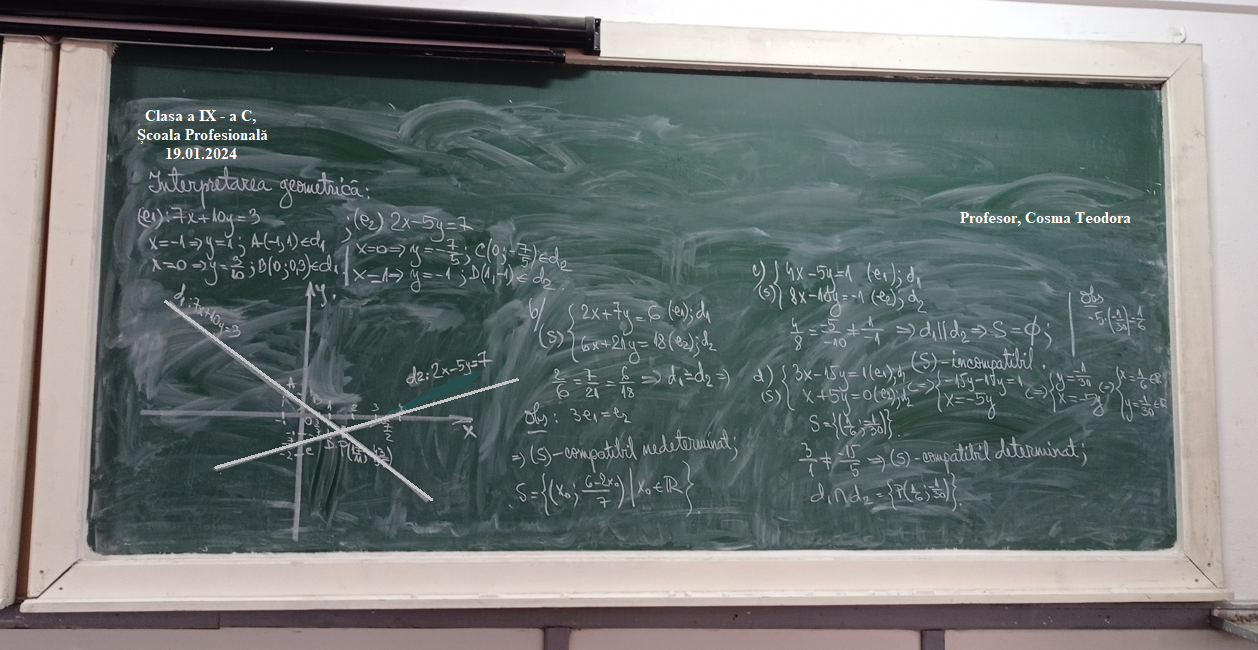 Clasa a IX - a C,
Școala Profesională
19.01.2024
Interpretarea geometrică:
(e1): 7x+10y=3
x=-1 => y=1; A(-1,1)∈d1
x=0 => y=3/10; B(0;0,3)∈d1
;(e2) 2x-5y=7
x=0 => y=-7/5; C(0;-7/5)∈d2
x=1 => y=-1; D(1,-1)∈d2.
d1: 7x+10y=3
y
d2: 2x-5y=7
x
b) (S) { 2x+7y=6 (e1); d1
6x+21y=18 (e2); d2
2/6 = 7/21 = 6/18 => d1=d2 =>
Obs: 3e1=e2
=> (S)-compatibil nedeterminat;
S={(x0; (6-2x0)/7) | x0∈ℝ}
Profesor, Cosma Teodora
c) (S) { 4x-5y=1 (e1); d1
8x-10y=-1 (e2); d2
4/8 = -5/-10 ≠ 1/-1 => d1||d2 => S=Φ;
(S)-incompatibil.
Obs
-5·(-1/30)=1/6
d) (S) { 3x-15y=1 (e1); d1
x+5y=0 (e2); d2
<=> { -15y-15y=1
x=-5y
<=> { y=-1/30
x=-5y
<=> { x=1/6∈ℝ
y=-1/30∈ℝ
S={(1/6; -1/30)}.
3/1 ≠ -15/5 => (S)-compatibil determinat;
d1∩d2={P(1/6; -1/30)}.